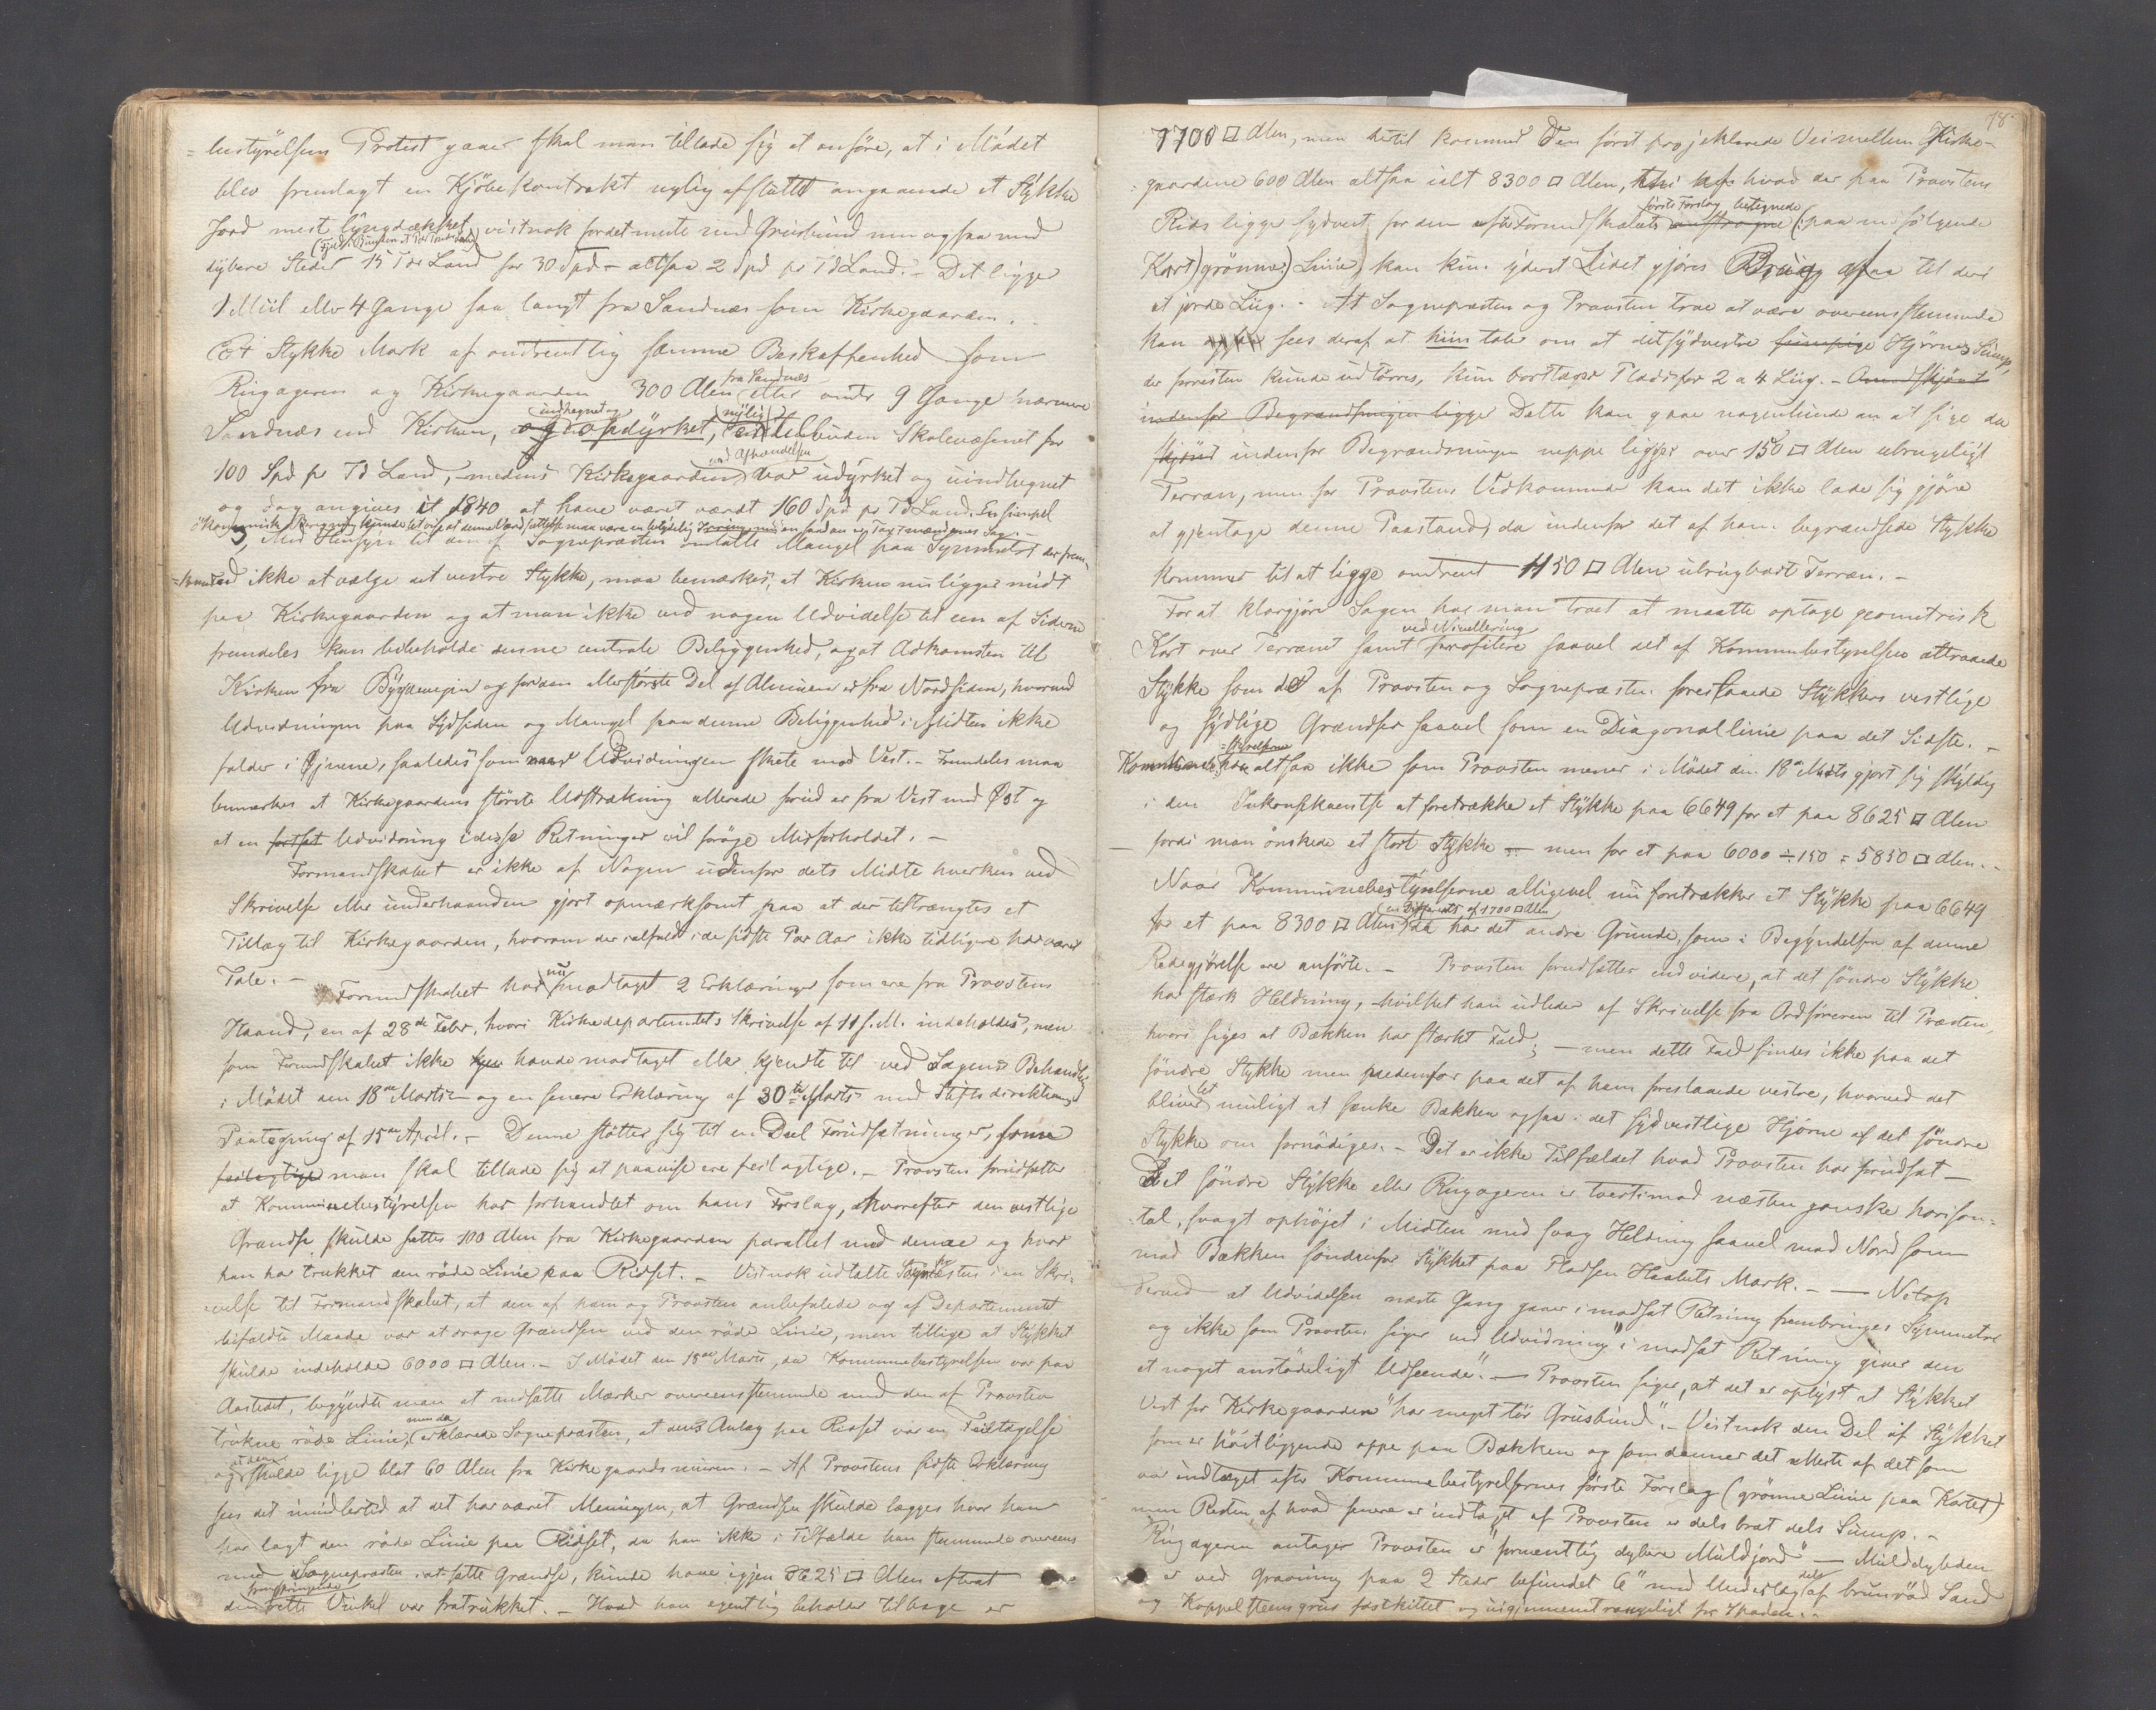 =bestÿrelsens Protest gaaer skal man tillade sig at anføre, at i Mödet
blev fremlagt en Kjöbekontrakt nylig afsluttet angaaende et Stÿkke
Jord mest lÿngdækket, vistnok fordetmeste med Gruusbund men ogsaa med
dÿbere Steder 15 Tdr Land for 30 Spd – altsaa 2 Spd pr Td Land. – Det ligger
1 Miil eller 4 Gange saa langt fra Sandnæs som Kirkegaarden.
Et Stykke Mark af omtrentlig samme Beskaffenhed som
Ringageren og Kirkegaarden 300 Alen fra Sandnæs eller omtr 9 Gange nærmere
Sandnæs end Kirken, indhegnet og opdÿrket, er nÿlig tilbuden Skolevæsenet for
100 Spd pr Td Land, – medens Kirkegaarden ved Afhændelsen var udÿrket og uindhegnet
og dog angives i 1840 at have været værdt 160 Spd pr Td Land. En simpel
3, Med Hensyn til den af Sognepræsten omtalte Mangel paa Symmetri der frem-
=kommer ved ikke at vælge det vestre Stykke, maa bemærkes, at Kirken nu ligger midt
paa Kirkegaarden og at man ikke ved nogen Udvidelse til en af Siderne
fremdeles kan bibeholde denne centrale Beliggenhed, og at Adkomsten til
Kirken fra Bÿgdeveien og for den allerstörste Del af Almuen er fra Nordsiden, hvorved
Udvidningen paa Sÿdsiden og Mangel paa denne Beliggenhed i Midten ikke
falder i Øjnene, saaledes som naar Udvidningen skete mod Vest. – Fremdeles maa
bemærkes at Kirkegaardens störste Udstrækning allerede forud er fra Vest mod Øst og
at en fortsat Udvidning i disse Retninger vil forøge Misforholdet. –
Formandskabet er ikke af Nogen udenfor dets Midte hverken ved
Skrivelse eller underhaanden gjort opmærksomt paa at der tiltrængtes et
Tillæg til Kirkegaarden, hvorom der ialfald i de sidste Par Aar ikke tidligere har været
Tale. –
Formandskabet har nu modtaget 2 Erklæringer som ere fra Provstens
Haand, en af 28de Febr. hvori Kirkedepartementets Skrivelse af 11 s. M. indeholdes, men
som Formandskabet ikke havde modtaget eller kjendte til ved Sagens Behandling
i Mödet den 18de Marts – og en senere Erklæring af 30te Marts med Stiftsdirektionens
Paategning af 15de April. – Denne støtter sig til en Deel Forudsætninger, som
feilagtige man skal tillade sig at paavise ere feilagtige. – Provsten forudsætter
at Kommunebestÿrelsen har forhandlet om hans Forslag, hvorefter den vestlige
Grændse skulde sættes 100 Alen fra Kirkegaarden parallel med denne og hvor
han har trukket den röde Linie paa Ridset. – Vistnok udtalte Sognepræsten i en Skri-
velse til Formandskabet, at den af ham og Provsten anbefalede og af Departementet
bifaldte Maade var at drage Grændsen ved den röde Linie, men tillige at Stÿkket
skulde indeholde 6000 □ Alen. – I Mödet den 18de Marts, da Kommunebestyrelsen var paa
Aastedet, begÿndte man at nedsætte Mærker overeensstemmende med den af Provsten
trukne röde Linie, men da erklærede Sognepræsten, at dens Anlæg paa Ridset var en Feiltagelse
og at den skulde ligge blot 60 Alen fra Kirkegaardsmuren. – Af Provstens sidste Erklæring
sees det imidlertid at det har været Meningen, at Grændsen skulde lægges hvor han
har lagt den röde Linie paa Ridset, da han ikke i Tilfælde han stemmende overeens
med Sognepræsten i at sætte Grændse, kunde have igjen 8625 □ Alen efterat
den fremspringende rette Vinkel var fratrukket. – Hvad han egentlig beholder tilbage er
78
7700 □ Alen, men hertil kommer den först projekterede Vei mellem Kirke-
gaardene 600 Alen altsaa ialt 8300 □ Alen, thi hvad der paa Provstens
Rids ligger sydvest for den efter Formandskabets første Forslag betegnede (: paa medfölgende
Kart) grönne) Linie, kan kun ÿderst Lidet gjöres Brug af til der
at jorde Liig. – At Sognepræsten og Provsten troe at være overeensstemmende
kan sees deraf at hiin taler om at det sÿdvestre sumpige Hjörnes Sump,
der forresten kunde udtörres, kun borttager Plads for 2 a 4 Liig. –
indenfor Begrændsningen ligger Dette kan gaae nogenlunde an at sige da
indenfor Begrændsningen neppe ligger over 150 □ Alen ubrugeligt
Terræn, men for Provstens Vedkommende kan det ikke lade sig gjöre
at gjentage denne Paastand, da indenfor det af ham begrændsede Stykke
kommer til at ligge omtrent 1150 □ Alen ubrugbart Terræn. –
For at klargjöre Sagen har man troet at maatte optage geometrisk
Kart over Terrænet samt ved Nivellering profilere saavel det af Kommunebestyrelsen attraaede
Stÿkke som det af Provsten og Sognepræsten foreslaaede Stÿkkes vestlige
og sÿdlige Grændser saavel som en Diagonallinie paa det Sidste. –
Kommunebestyrelserne har altsaa ikke som Provsten mener i Mödet den 18de Marts gjort sig skyldig
i den Inkonsekvents at foretrække et Stÿkke paa 6649 for et paa 8625 □ Alen
fordi man önskede et stort Stÿkke – men for et paa 6000 ÷ 150 = 5850 □ Alen. –
Naar Kommunebestÿrelserne alligevel nu foretrækker et Stÿkke paa 6649
for et paa 8300 □ Alen (en Differents af 1700 □ Alen) da har det andre Grunde, som i Begÿndelsen af denne
Redegjörelse ere anförte. – Provsten forudsætter endvidere, at det söndre Stÿkke
har stærk Heldning, – hvilket han udleder af Skrivelse fra Ordföreren til Præsten,
hvori siges at Bækken har stærkt Fald; – men dette Fald findes ikke paa det
söndre Stykke men nedenfor paa det af ham foreslaaede vestre, hvorved det
bliver let muligt at sænke Bækken ogsaa i det sydvestlige Hjörne af det söndre
Stykke om fornödiges. – Det er ikke Tilfældet hvad Provsten har forudsat –
Det söndre Stÿkke eller Ringageren er tvertimod næsten ganske horison=
=tal, svagt ophöjet i Midten med svag Heldning saavel mod Nord som
mod Bækken söndenfor Stÿkket paa Pladsen Haabets Mark. – — Netop
derved at Udvidelsen næste Gang gaaer i modsat Retning frembringes Symmetrie
og ikke som Provsten siger ved Udvidning "i modsat Retning giver den
et noget anstödeligt Udseende". — Provsten siger, at det er oplÿst at Stÿkket
Vest for Kirkegaarden "har meget tör Gruusbund". – Vistnok den Del af Stÿkket
som er höist liggende oppe paa Bakken og som danner det Meste af det som
var indtaget efter Kommunebestyrelsernes förste Forslag (grönne Linie paa Kartet)
men Resten af hvad senere er indtaget af Provsten er dels brat dels Sump. –
Ringageren antager Provsten er "formentlig dybere Muldjord" – Mulddybden
er ved Gravning paa 2 Steder befundet 6" med Underlag dels af bruunröd Sand
og Koppelsteensgruus fastkittet og uigjennemtrængeligt for Spaden. –